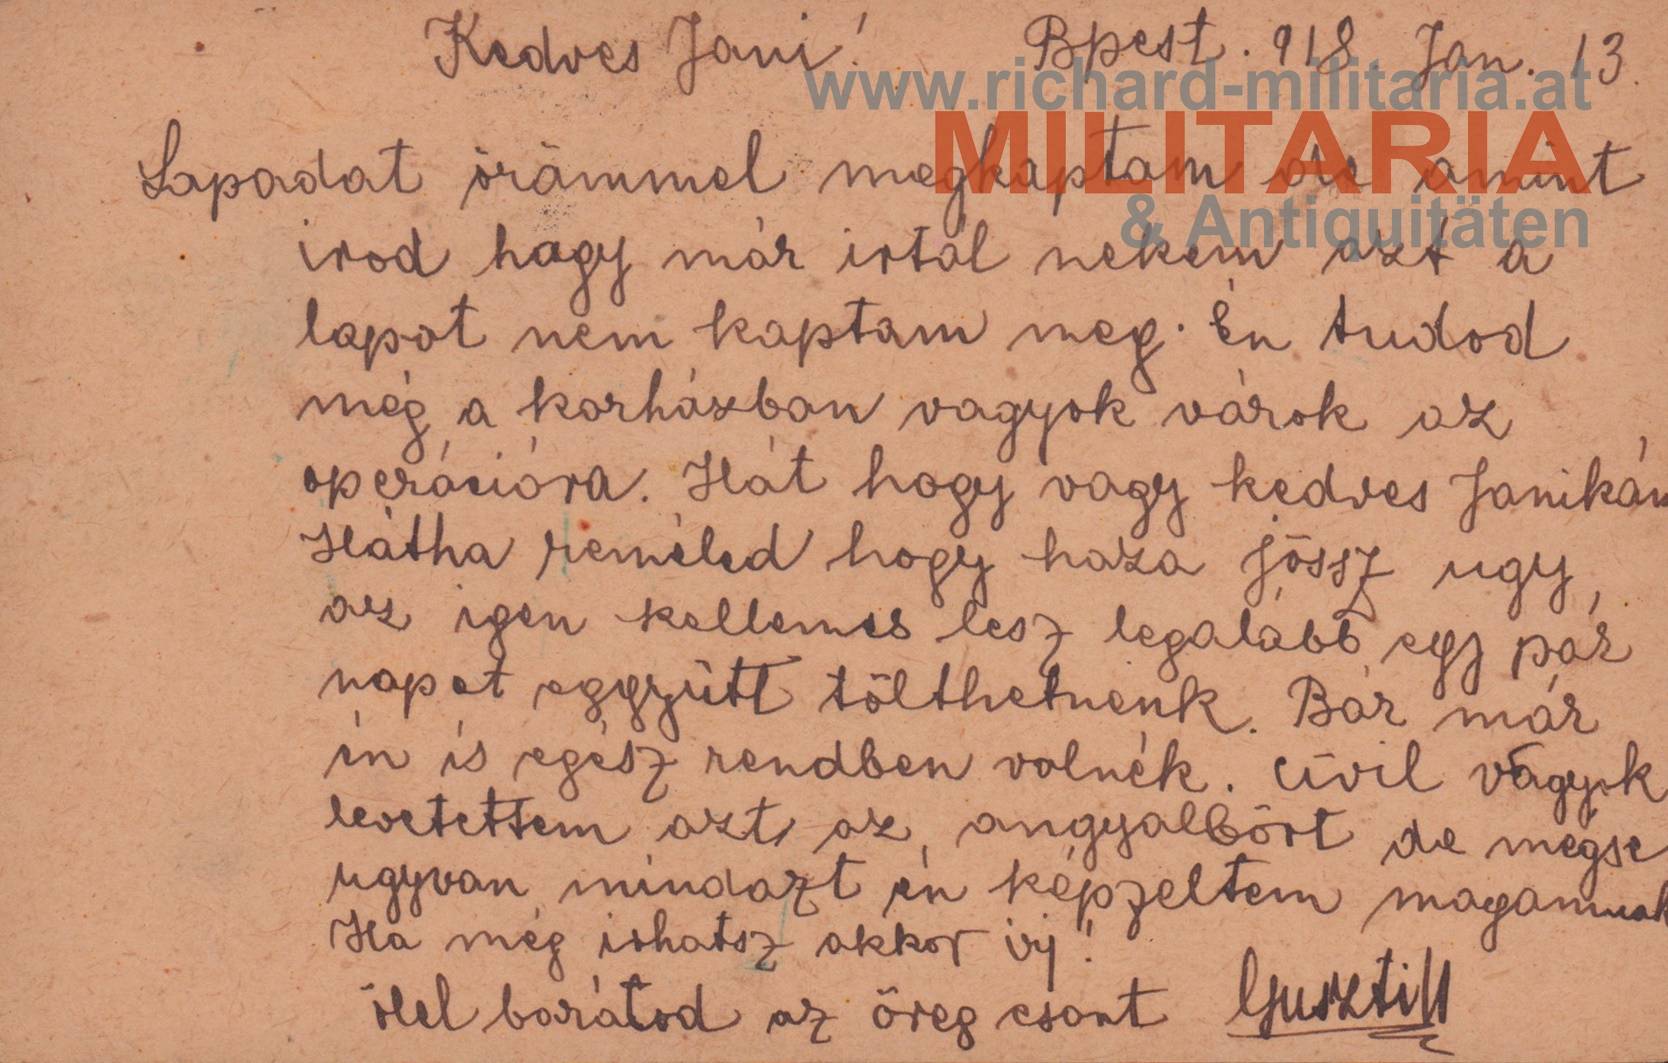 Kedves Jani! Bpest. 918 Jan. 13.
www.richard-militaria.at
MILITARIA
& Antiquitäten
Lapadat örömmel megkaptam de amint
irod hogy már irtál nekem azt a
lapot nem kaptam meg. Én tudod
még a korházban vagyok várok az
operációra. Hát hogy vagy kedves Janikám
Hátha reméled hogy haza jössz ugy
az igen kellemes lesz legalább egy pár
napot eggyütt tölthetnenk. Bár már
én is egész rendben volnék. civil vagyok
levetettem azt az angyalbőrt de mégse
ugyvan mindazt én képzeltem magamnak
Ha még irhatsz akkor irj!
ölel barátod az öreg csont Guszti